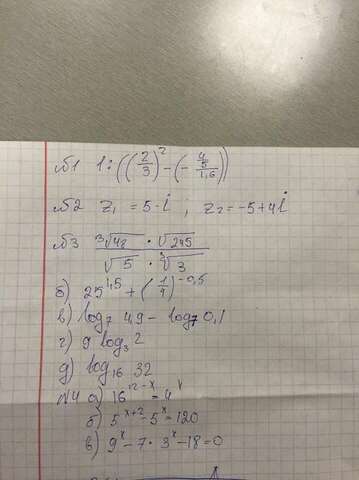 №1 1:((2/3)² - (- 4/5/1,6))
№2 z₁ = 5-i ; z₂ = -5+4i
№3 ³√48 · √245 / √5 · ³√3
б) 25^1,5 + (1/4)^-0,5
в) log₇ 4,9 - log₇ 0,1
г) 9 log₃ 2
д) log₁₆ 32
№4 а) 16^12-x = 4^x
б) 5^x+2 - 5^x = 120
в) 9^x - 7 · 3^x - 18 = 0